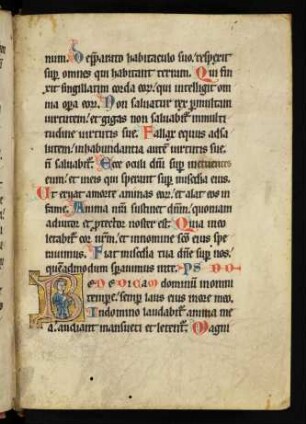 num. De pparato habitaculo suo. respexit
sup omnes qui habitant terram. Qui fin
xit singillatim corda eorum. qui intelligit om
nia opa eorum. Non saluatur rex p multam
uirtutem. et gigas non saluabit in multi
tudine uirtutis sue. Fallax equus ad sa
lutem. in habundantia autem uirtutis sue
n saluabit. Ecce oculi dni sup metuentes
eum. et in eis qui sperant sup misedia eius.
Ut eruat a morte animas eorum. et alat eos in
fame. Anima nra sustinet dnm. quoniam
adiutor et protector noster est. Quia in eo
letabit cor nrm. et in nomine sco eius spe
rauimus. Fiat misedia tua dne sup nos.
quemadmodum sperauimus in te. PS
BENEDICAM dominum in omni
tempe. semp laus eius in ore meo.
In domino laudabit anima me
a. audiant mansueti et letent. Magni